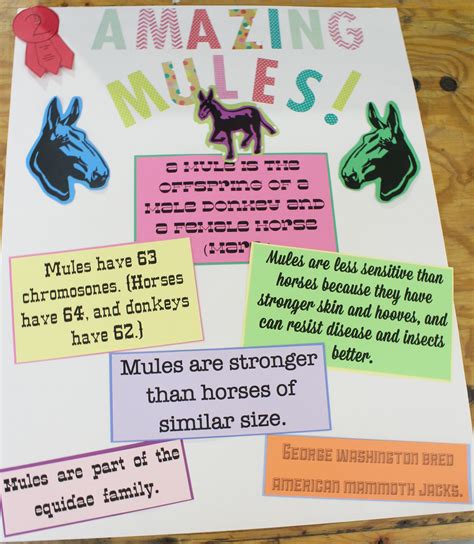 2
AMAZING
MULES!
a Mule is the
offspring of a
Male donkey and
a female horse
Mules have 63
chromosones. (Horses
have 64, and donkeys
have 62.)
Mules are less sensitive than
horses because they have
stronger skin and hooves, and
can resist disease and insects
better.
Mules are stronger
than horses of
similar size.
Mules are part of the
equidae family.
George Washington bred
American Mammoth Jacks.